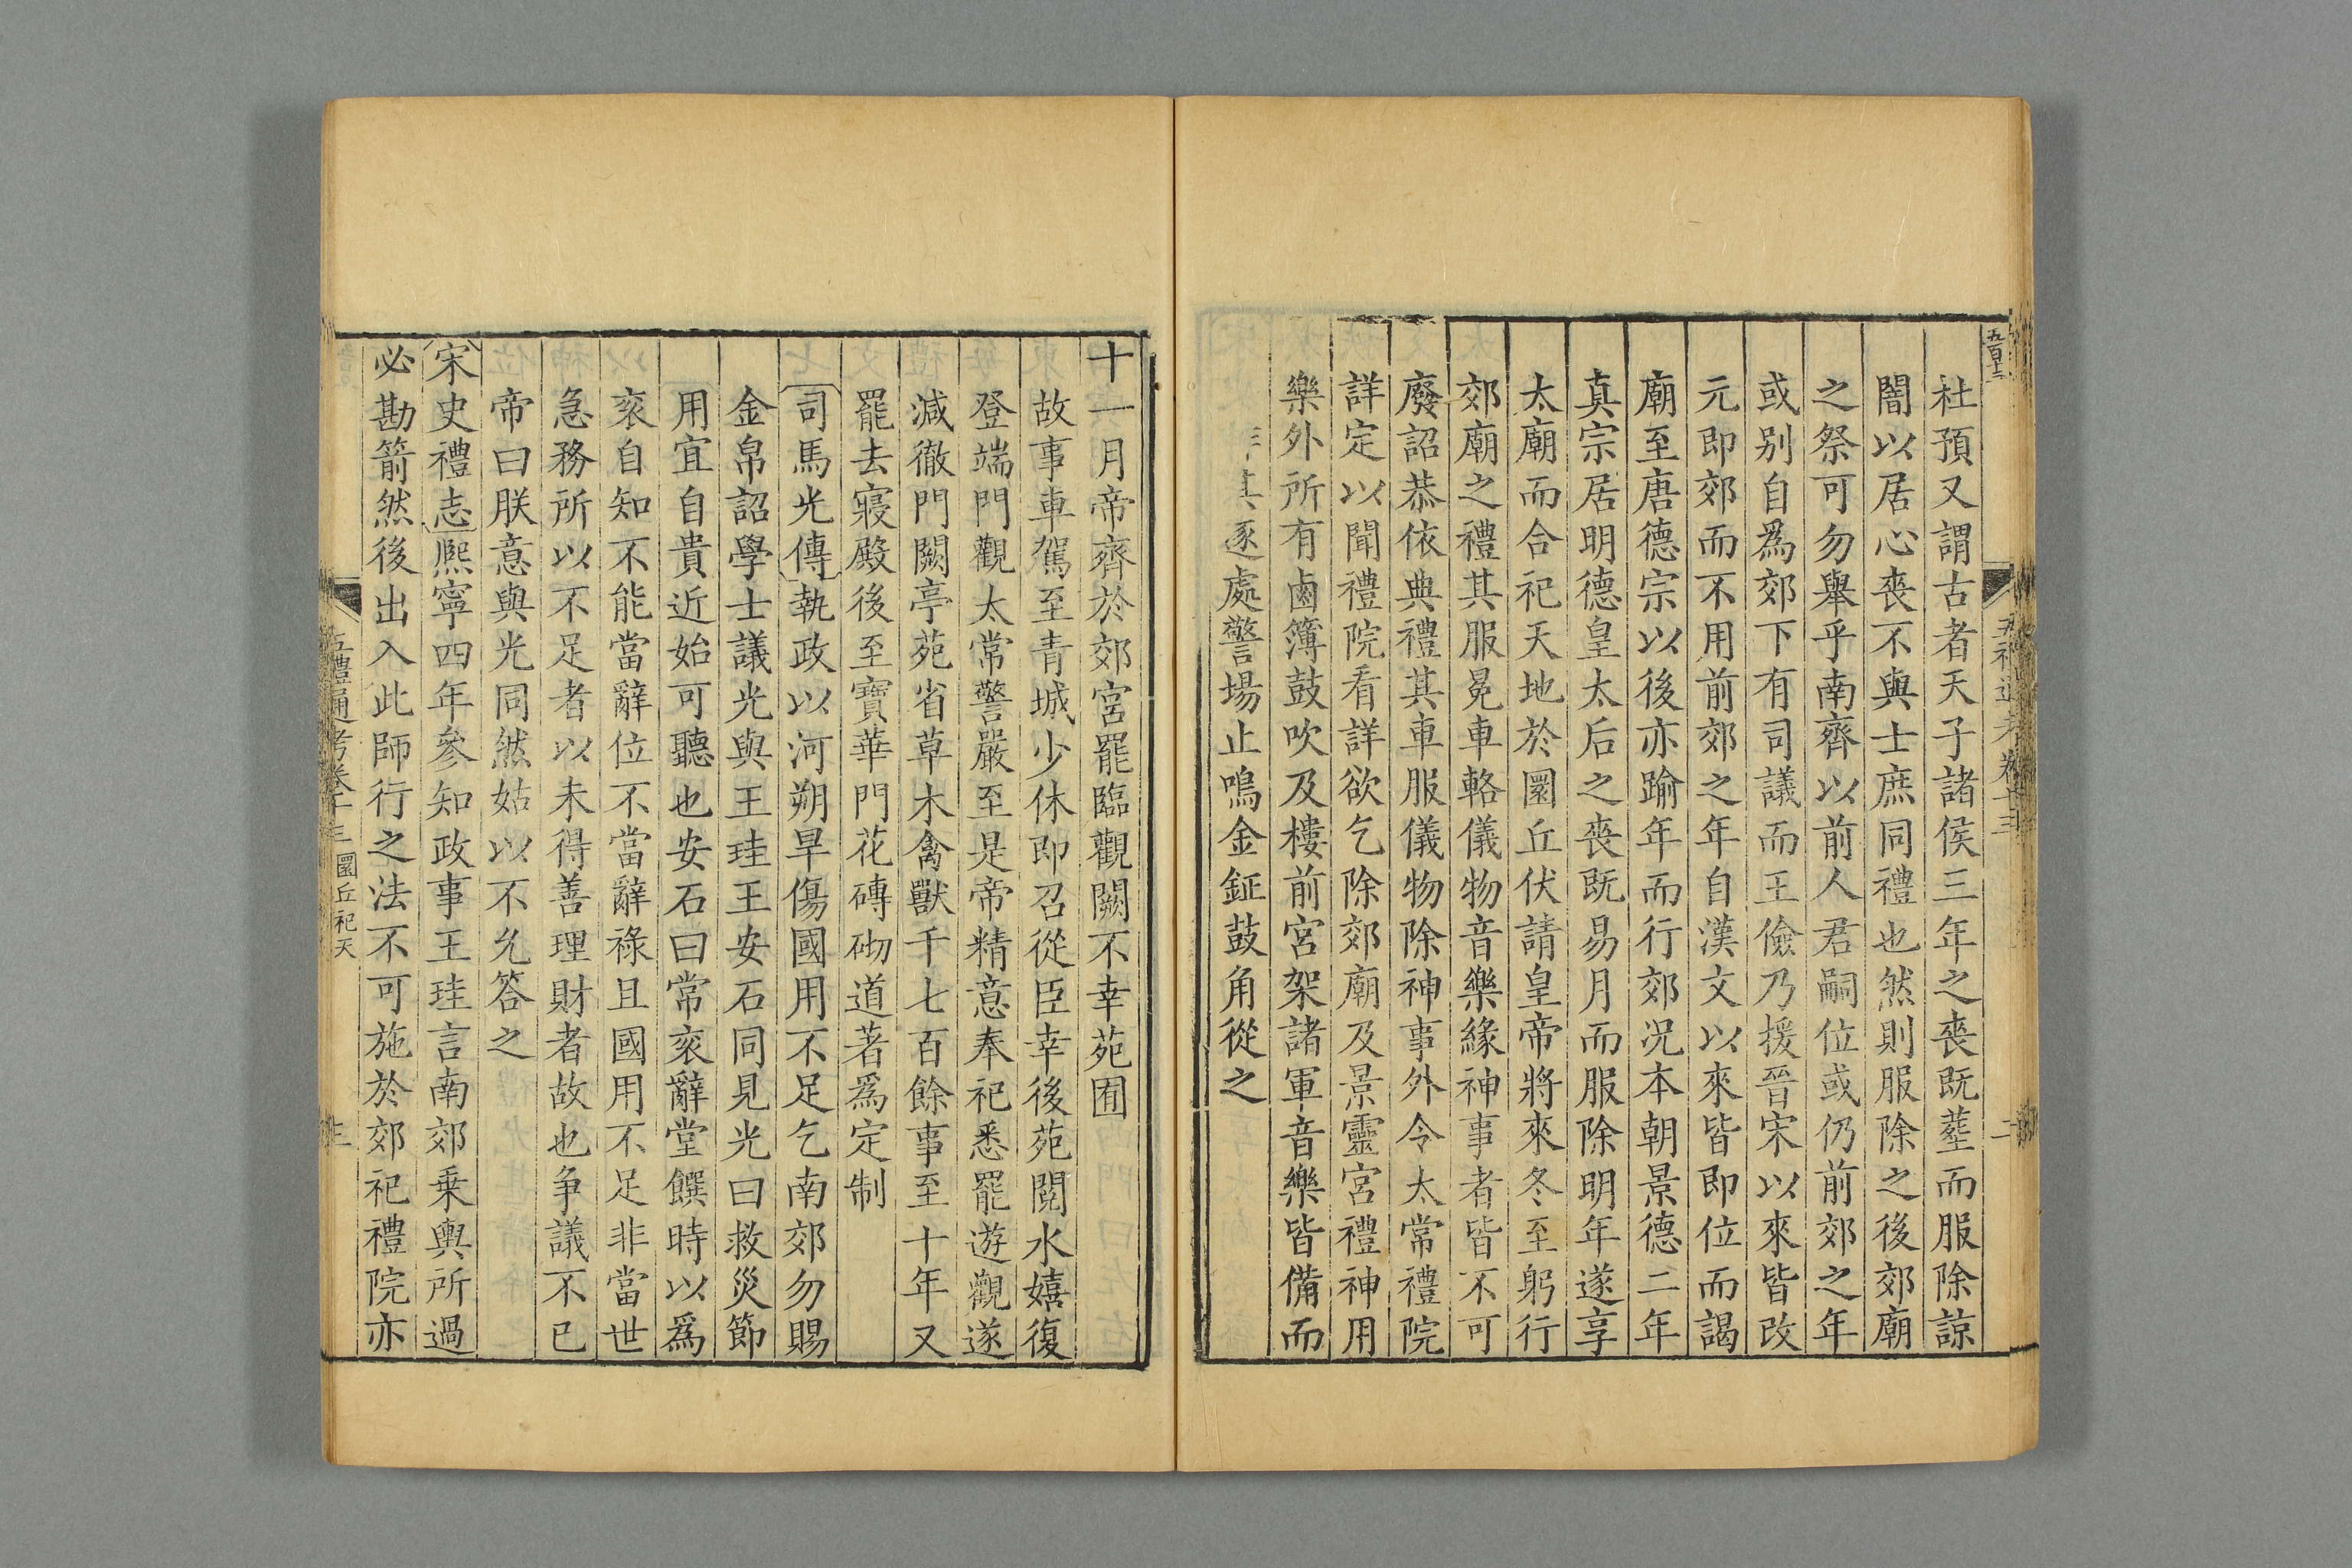 五百十二
五禮通考卷十三
二
杜預又謂古者天子諸侯三年之喪既葬而服除諒
闇以居心喪不與士庶同禮也然則服除之後郊廟
之祭可勿舉乎南齊以前人君嗣位或仍前郊之年
或别自爲郊下有司議而王儉乃援晉宋以來皆改
元即郊而不用前郊之年自漢文以來皆即位而謁
廟至唐德宗以後亦踰年而行郊况本朝景德二年
真宗居明德皇太后之喪既易月而服除明年遂享
太廟而合祀天地於圜丘伏請皇帝將來冬至躬行
郊廟之禮其服冕車輅儀物音樂緣神事者皆不可
廢詔恭依典禮其車服儀物除神事外令太常禮院
詳定以聞禮院看詳欲乞除郊廟及景靈宮禮神用
樂外所有鹵簿鼓吹及樓前宮架諸軍音樂皆備而
其逐處警場止鳴金鉦鼓角從之
十一月帝齊於郊宮罷臨觀闕不幸苑囿
故事車駕至青城少休即召從臣幸後苑閱水嬉復
登端門觀太常警嚴至是帝精意奉祀悉罷遊觀遂
減徹門闕亭苑省草木禽獸千七百餘事至十年又
罷去寢殿後至寶華門花磚砌道著爲定制
司馬光傳執政以河朔旱傷國用不足乞南郊勿賜
金帛詔學士議光與王珪王安石同見光曰救災節
用宜自貴近始可聽也安石曰常衮辭堂饌時以爲
衮自知不能當辭位不當辭祿且國用不足非當世
急務所以不足者以未得善理財者故也争議不已
帝曰朕意與光同然姑以不允答之
宋史禮志熙寧四年參知政事王珪言南郊乗輿所過
必勘箭然後出入此師行之法不可施於郊祀禮院亦
五禮通考卷十三
圜丘祀天